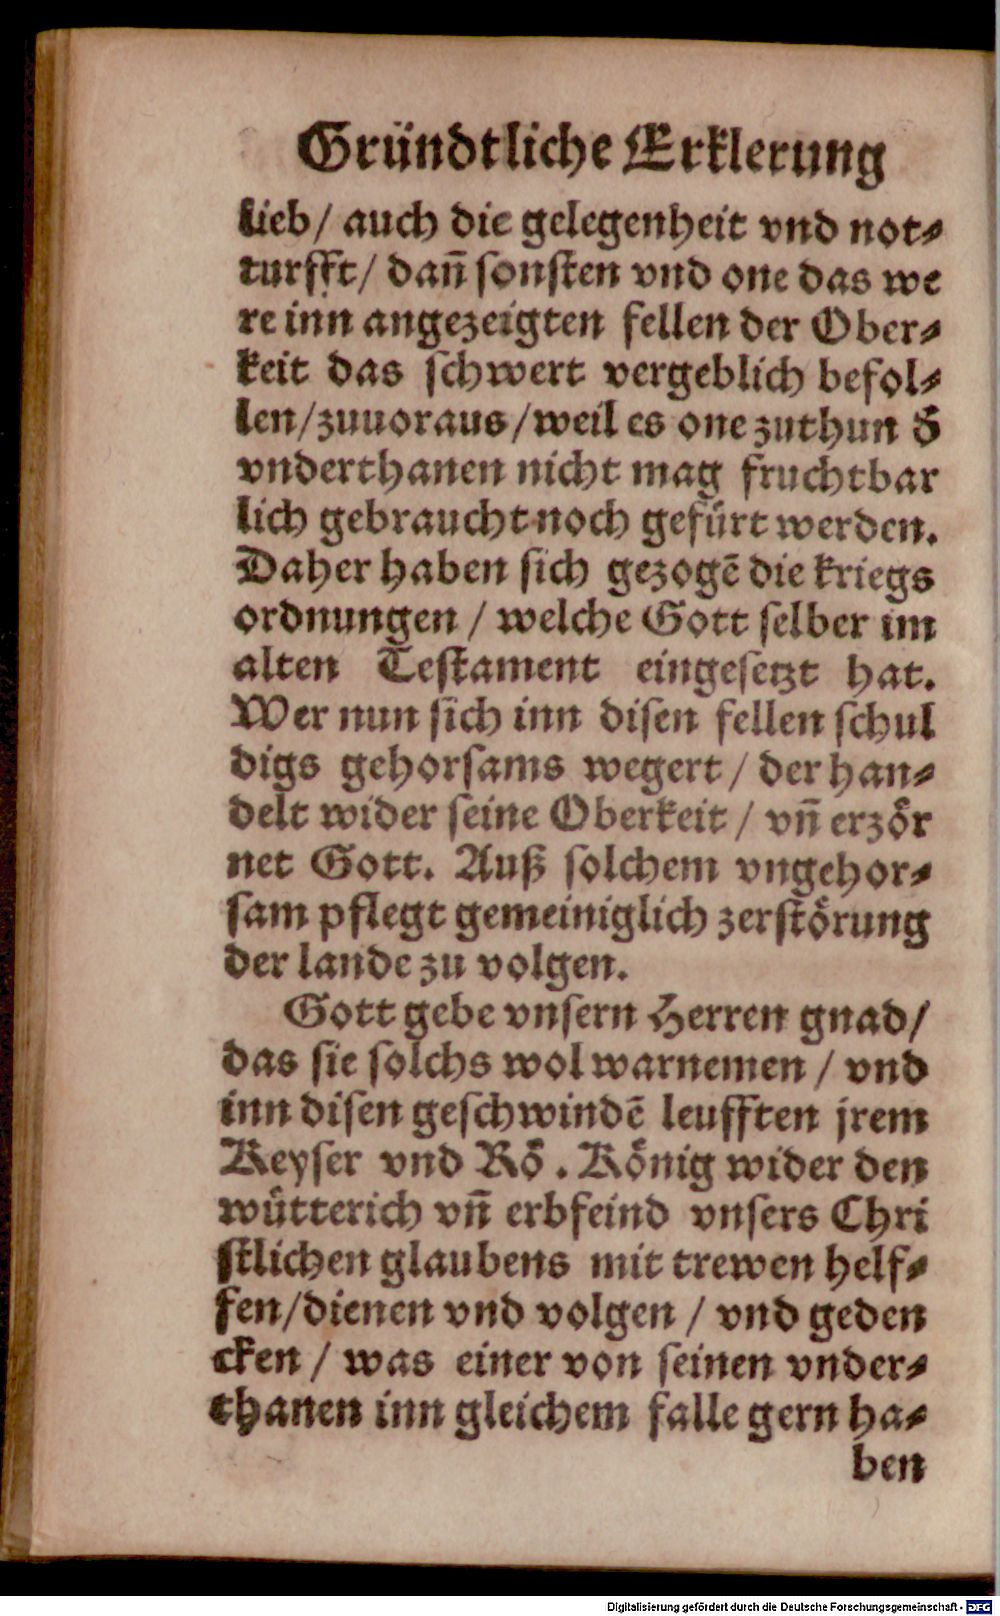 Gründtliche Erklerung
lieb/ auch die gelegenheit vnd not⸗
turfft/ dañ sonsten vnd one das we
re inn angezeigten fellen der Ober⸗
keit das schwert vergeblich befol⸗
len/zuuoraus/weil es one zuthun d̕
vnderthanen nicht mag fruchtbar
lich gebraucht noch gefürt werden.
Daher haben sich gezogē die kriegs
ordnungen / welche Gott selber im
alten Testament eingesetzt hat.
Wer nun sich inn disen fellen schul
digs gehorsams wegert / der han⸗
delt wider seine Oberkeit / vñ erzör
net Gott. Auß solchem vngehor⸗
sam pflegt gemeiniglich zerstörung
der lande zu volgen.
Gott gebe vnsern Herren gnad/
das sie solchs wol warnemen / vnd
inn disen geschwindē leufften jrem
Keyser vnd Rö. König wider den
wütterich vñ erbfeind vnsers Chri
stlichen glaubens mit trewen helf⸗
fen/dienen vnd volgen / vnd geden
cken / was einer von seinen vnder⸗
thanen inn gleichem falle gern ha⸗
ben
Digitalisierung gefördert durch die Deutsche Forschungsgemeinschaft - DFG